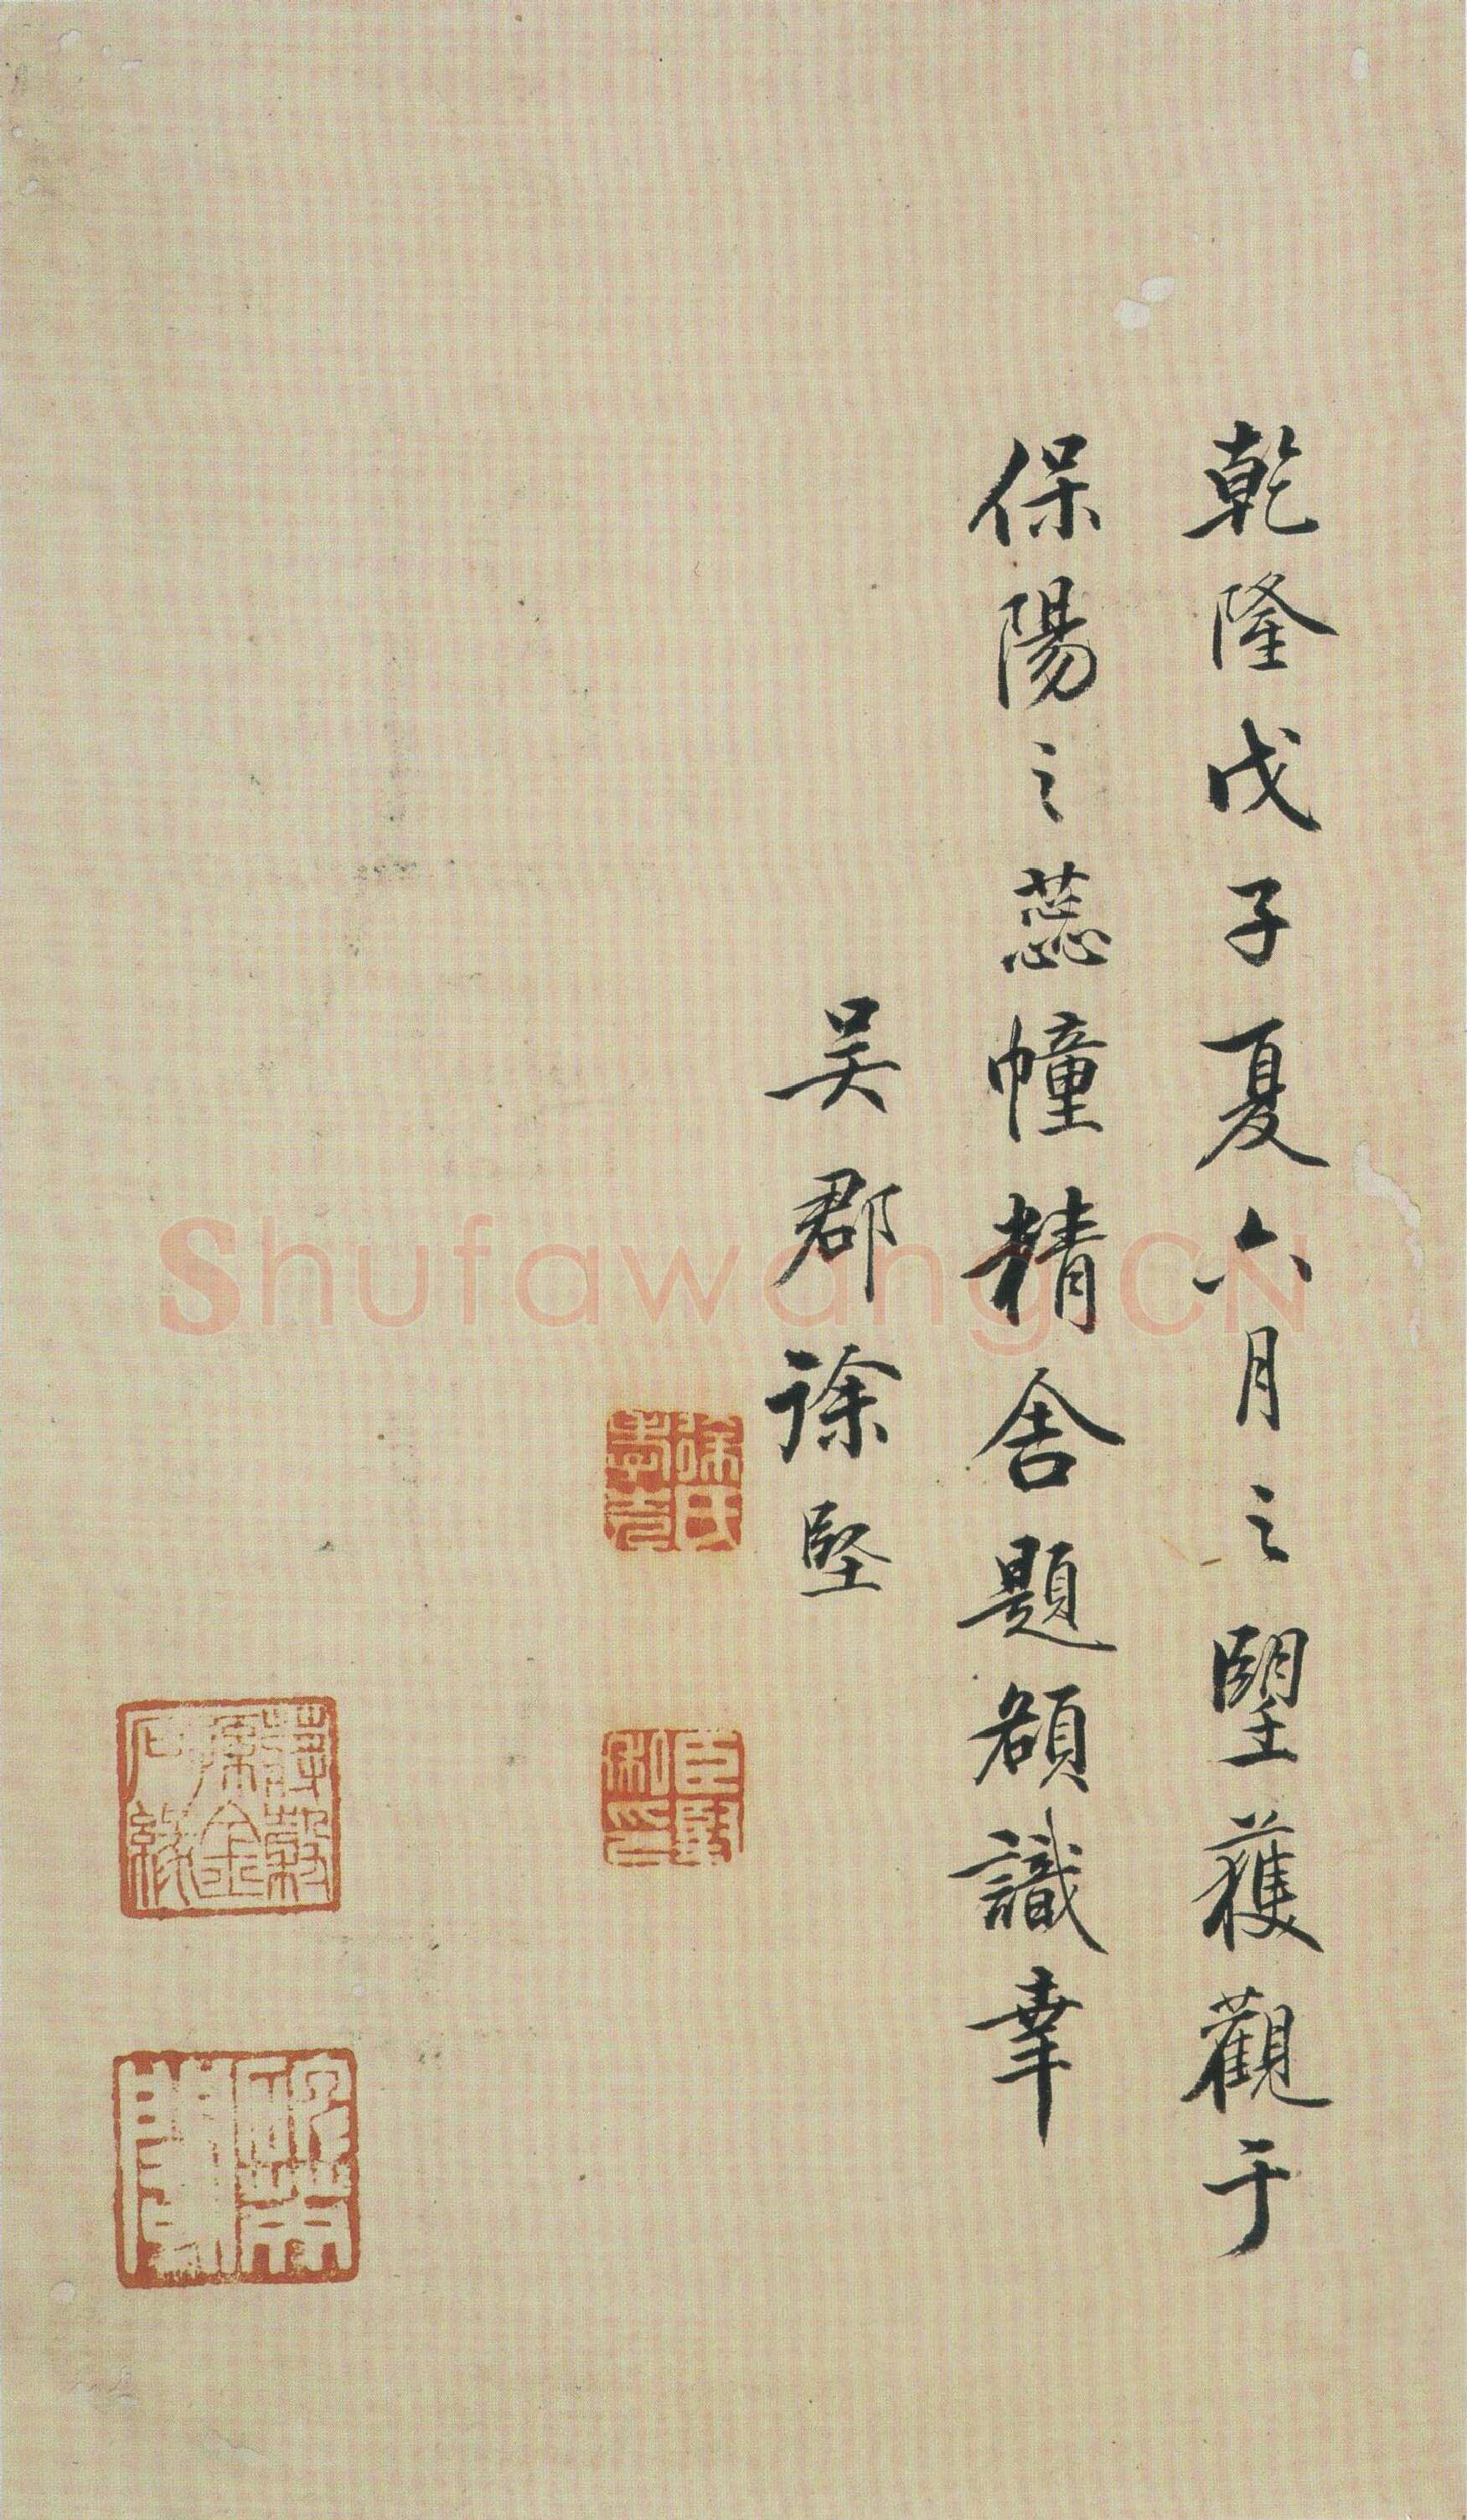 乾隆戊子夏六月之望獲觀于
保陽之蕊幢精舍題額識幸
吴郡徐堅
徐氏孝先
臣堅私印
Shufawang.CN